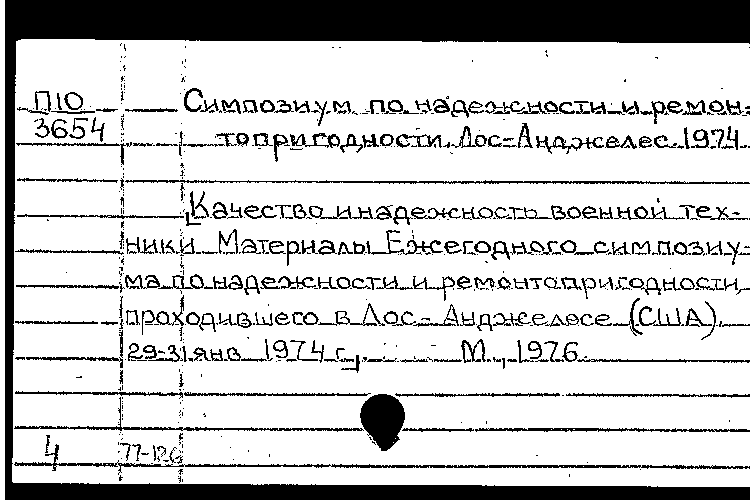 П10
3654
Симпозиум по надежности и ремон-
топригодности. Лос-Анджелес. 1974
[Качество и надежность военной тех-
ники Материалы Ежегодного симпозиу-
ма по надежности и ремонтопригодности,
проходившего в Лос-Анджелосе (США).
29-31 янв 1974 г.] М., 1976.
4 77-126